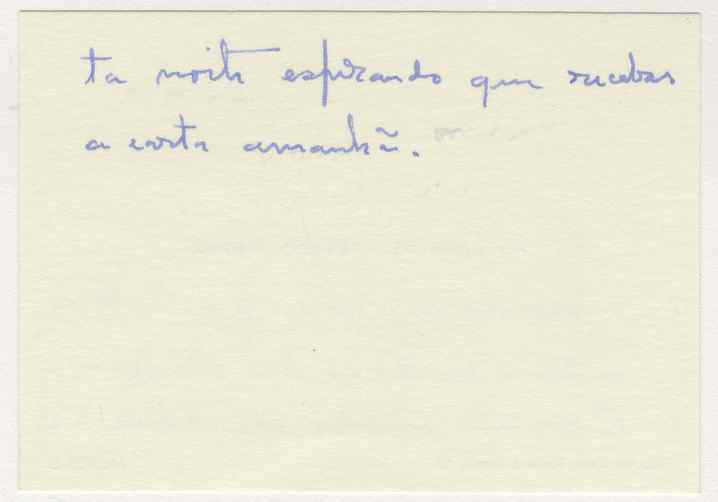 ta noite esperando que recebas
a carta amanhã.